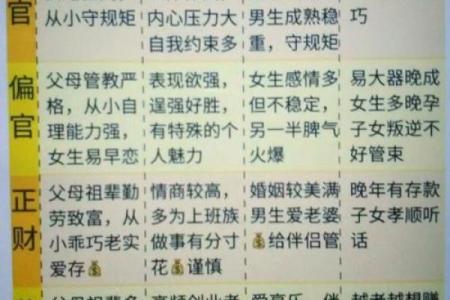 官
从小守规矩
内心压力大
自我约束多
男生成熟稳
重，守规矩
巧
偏官
父母管教严
格，从小自
理能力强，
女生易早恋
表现欲强，
逞强好胜，
有特殊的个
人魅力
女生感情多
但不稳定，
另一半脾气
火爆
易大器晚成
女生多晚孕
子女叛逆不
好管束
正财
父母祖辈勤
劳致富，从
小乖巧老实
爱存💰
情商较高，
多为上班族
做事有分寸
花💰谨慎
婚姻较美满
男生爱老婆
💰给伴侣管
晚年有存款
子女孝顺听
话